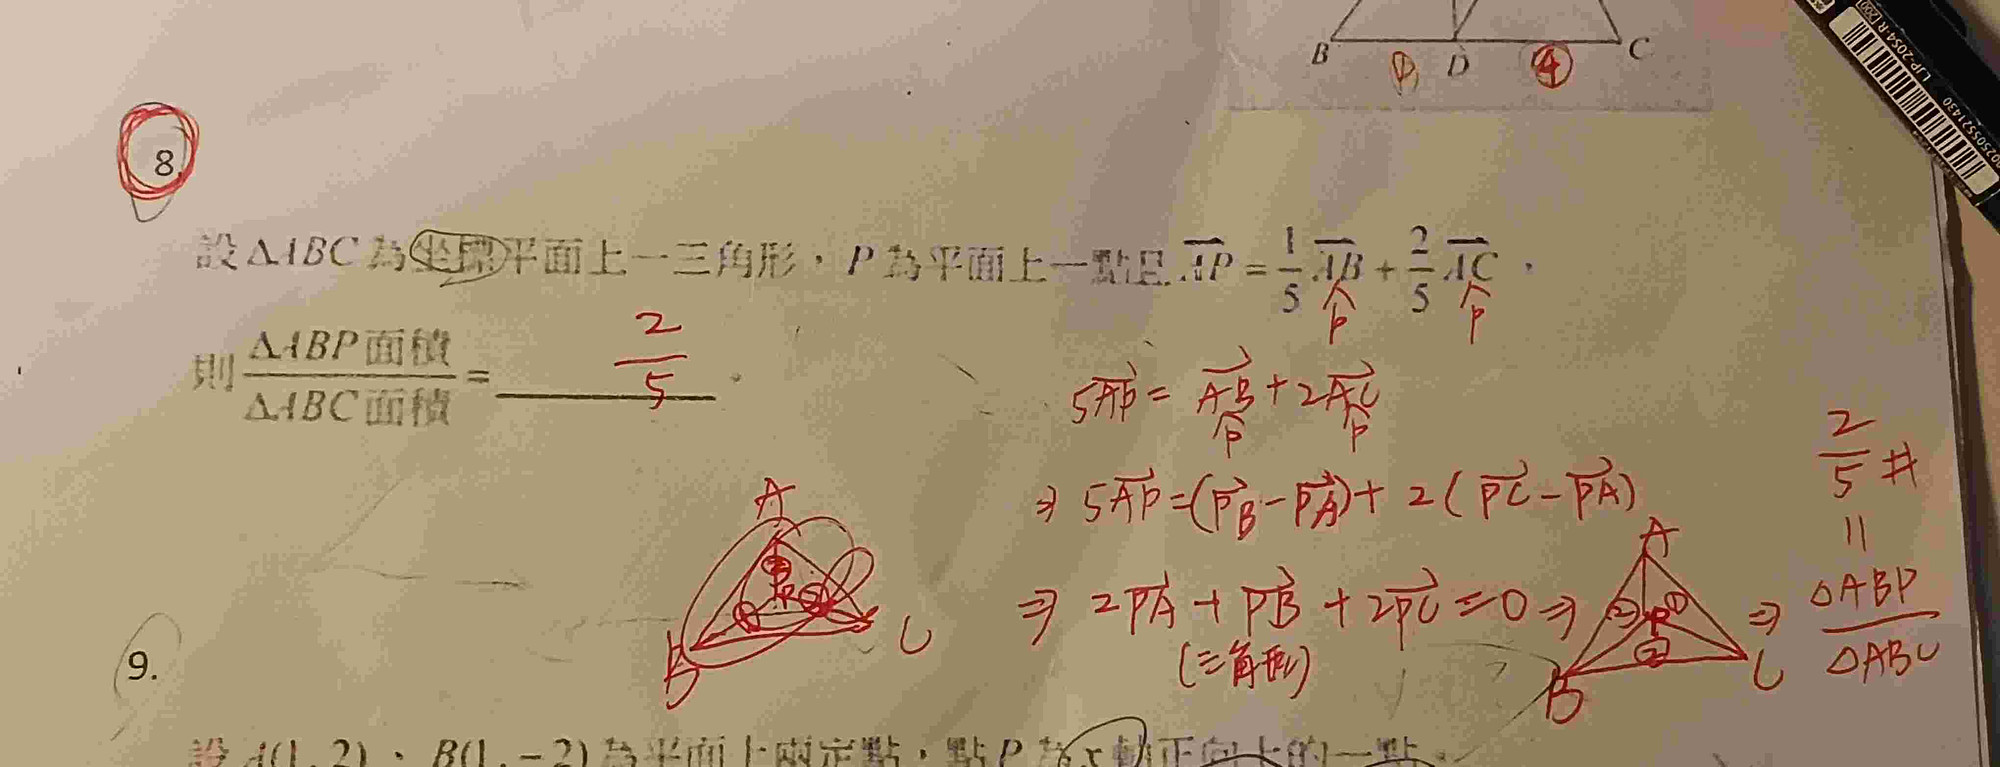 B ① D ④ C
LIP-2054-R
8.
設ΔABC為坐標平面上一三角形，P為平面上一點且 \overrightarrow{AP} = \frac{1}{5}\overrightarrow{AB} + \frac{2}{5}\overrightarrow{AC}，
P P
則 \frac{ΔABP面積}{ΔABC面積} = \frac{2}{5}。
5\overrightarrow{AP} = \overrightarrow{AB} + 2\overrightarrow{AC}
P P
⇒ 5\overrightarrow{AP} = (\overrightarrow{PB} - \overrightarrow{PA}) + 2(\overrightarrow{PC} - \overrightarrow{PA})
⇒ 2\overrightarrow{PA} + \overrightarrow{PB} + 2\overrightarrow{PC} = 0 ⇒
(三角形)
A
P
B C
A
② P ①
②
B C
⇒ \frac{ΔABP}{ΔABC} = \frac{2}{5} #
9.
設 A(1, 2)、B(1, -2)為平面上兩定點，點P為x軸正向上的一點，